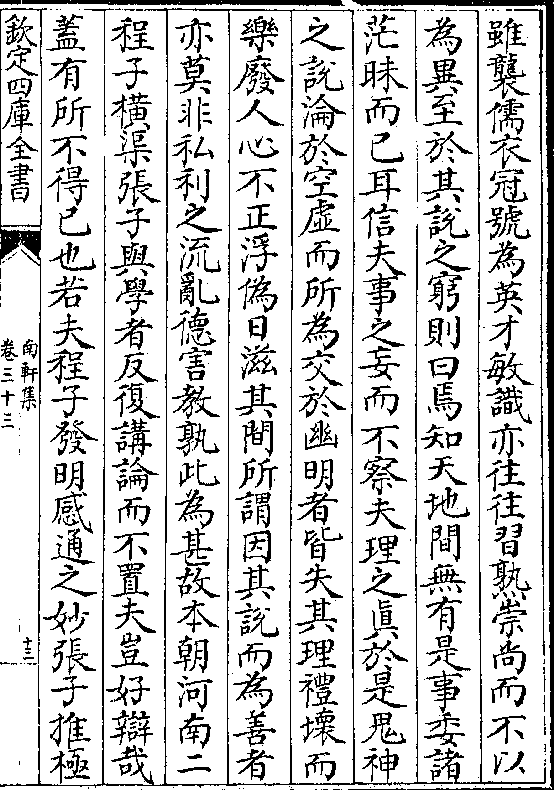 雖襲儒衣冠號為英才敏識亦往往習熟崇尚而不以
為異至於其說之窮則曰焉知天地間無有是事委諸
茫昧而已耳信夫事之妄而不察夫理之眞於是鬼神
之說淪於空虛而所為交於幽明者皆失其理禮壞而
樂廢人心不正浮偽日滋其間所謂因其說而為善者
亦莫非私利之流亂德害教孰此為甚故本朝河南二
程子橫渠張子與學者反復講論而不置夫豈好辯哉
蓋有所不得已也若夫程子發明感通之妙張子推極
欽定四庫全書
南軒集
卷三十三
十三